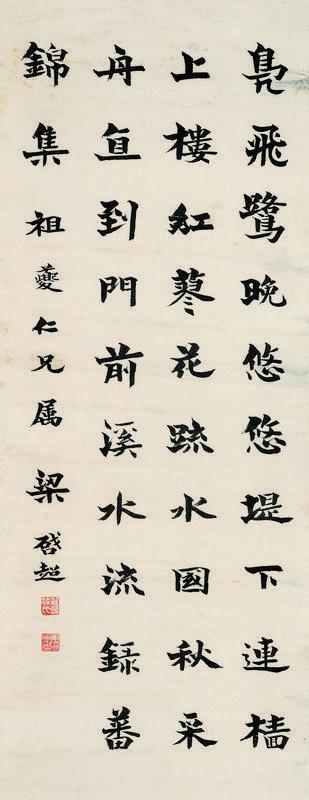 鳧飛鷺晚悠悠堤下連檣
上樓紅蓼花疏水國秋采
舟直到門前溪水流錄蕃
錦集祖夔仁兄属梁啓超